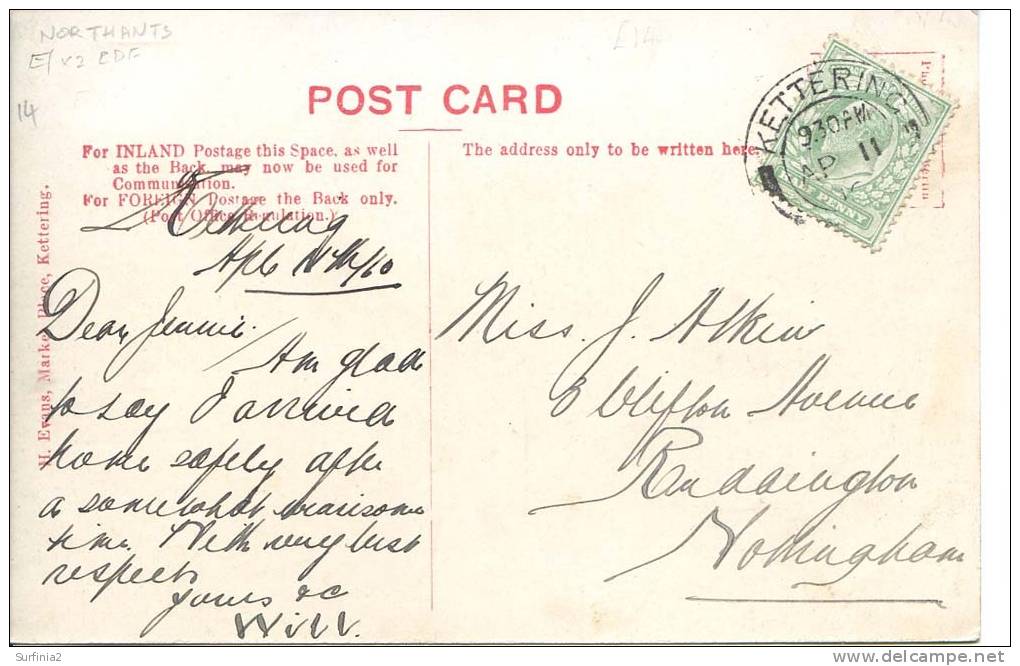 NORTHANTS
E/ x2 EDF
£14
14
POST CARD
For INLAND Postage this Space, as well
as the Back, may now be used for
Communication.
For FOREIGN Postage the Back only.
(Post Office Regulation.)
The address only to be written here.
H. Evans, Market Place, Kettering.
KETTERING
930AM
AP 11
PENNY
Kettering
Dear Jennie.
Am glad
to say I arrived
home safely after
a somewhat wearisome
time. With very best
respects
yours &c
Will.
Miss. J. Atkin
Clifton Avenue
Ruddington
Nottingham
Surfinia2
delcampe.net